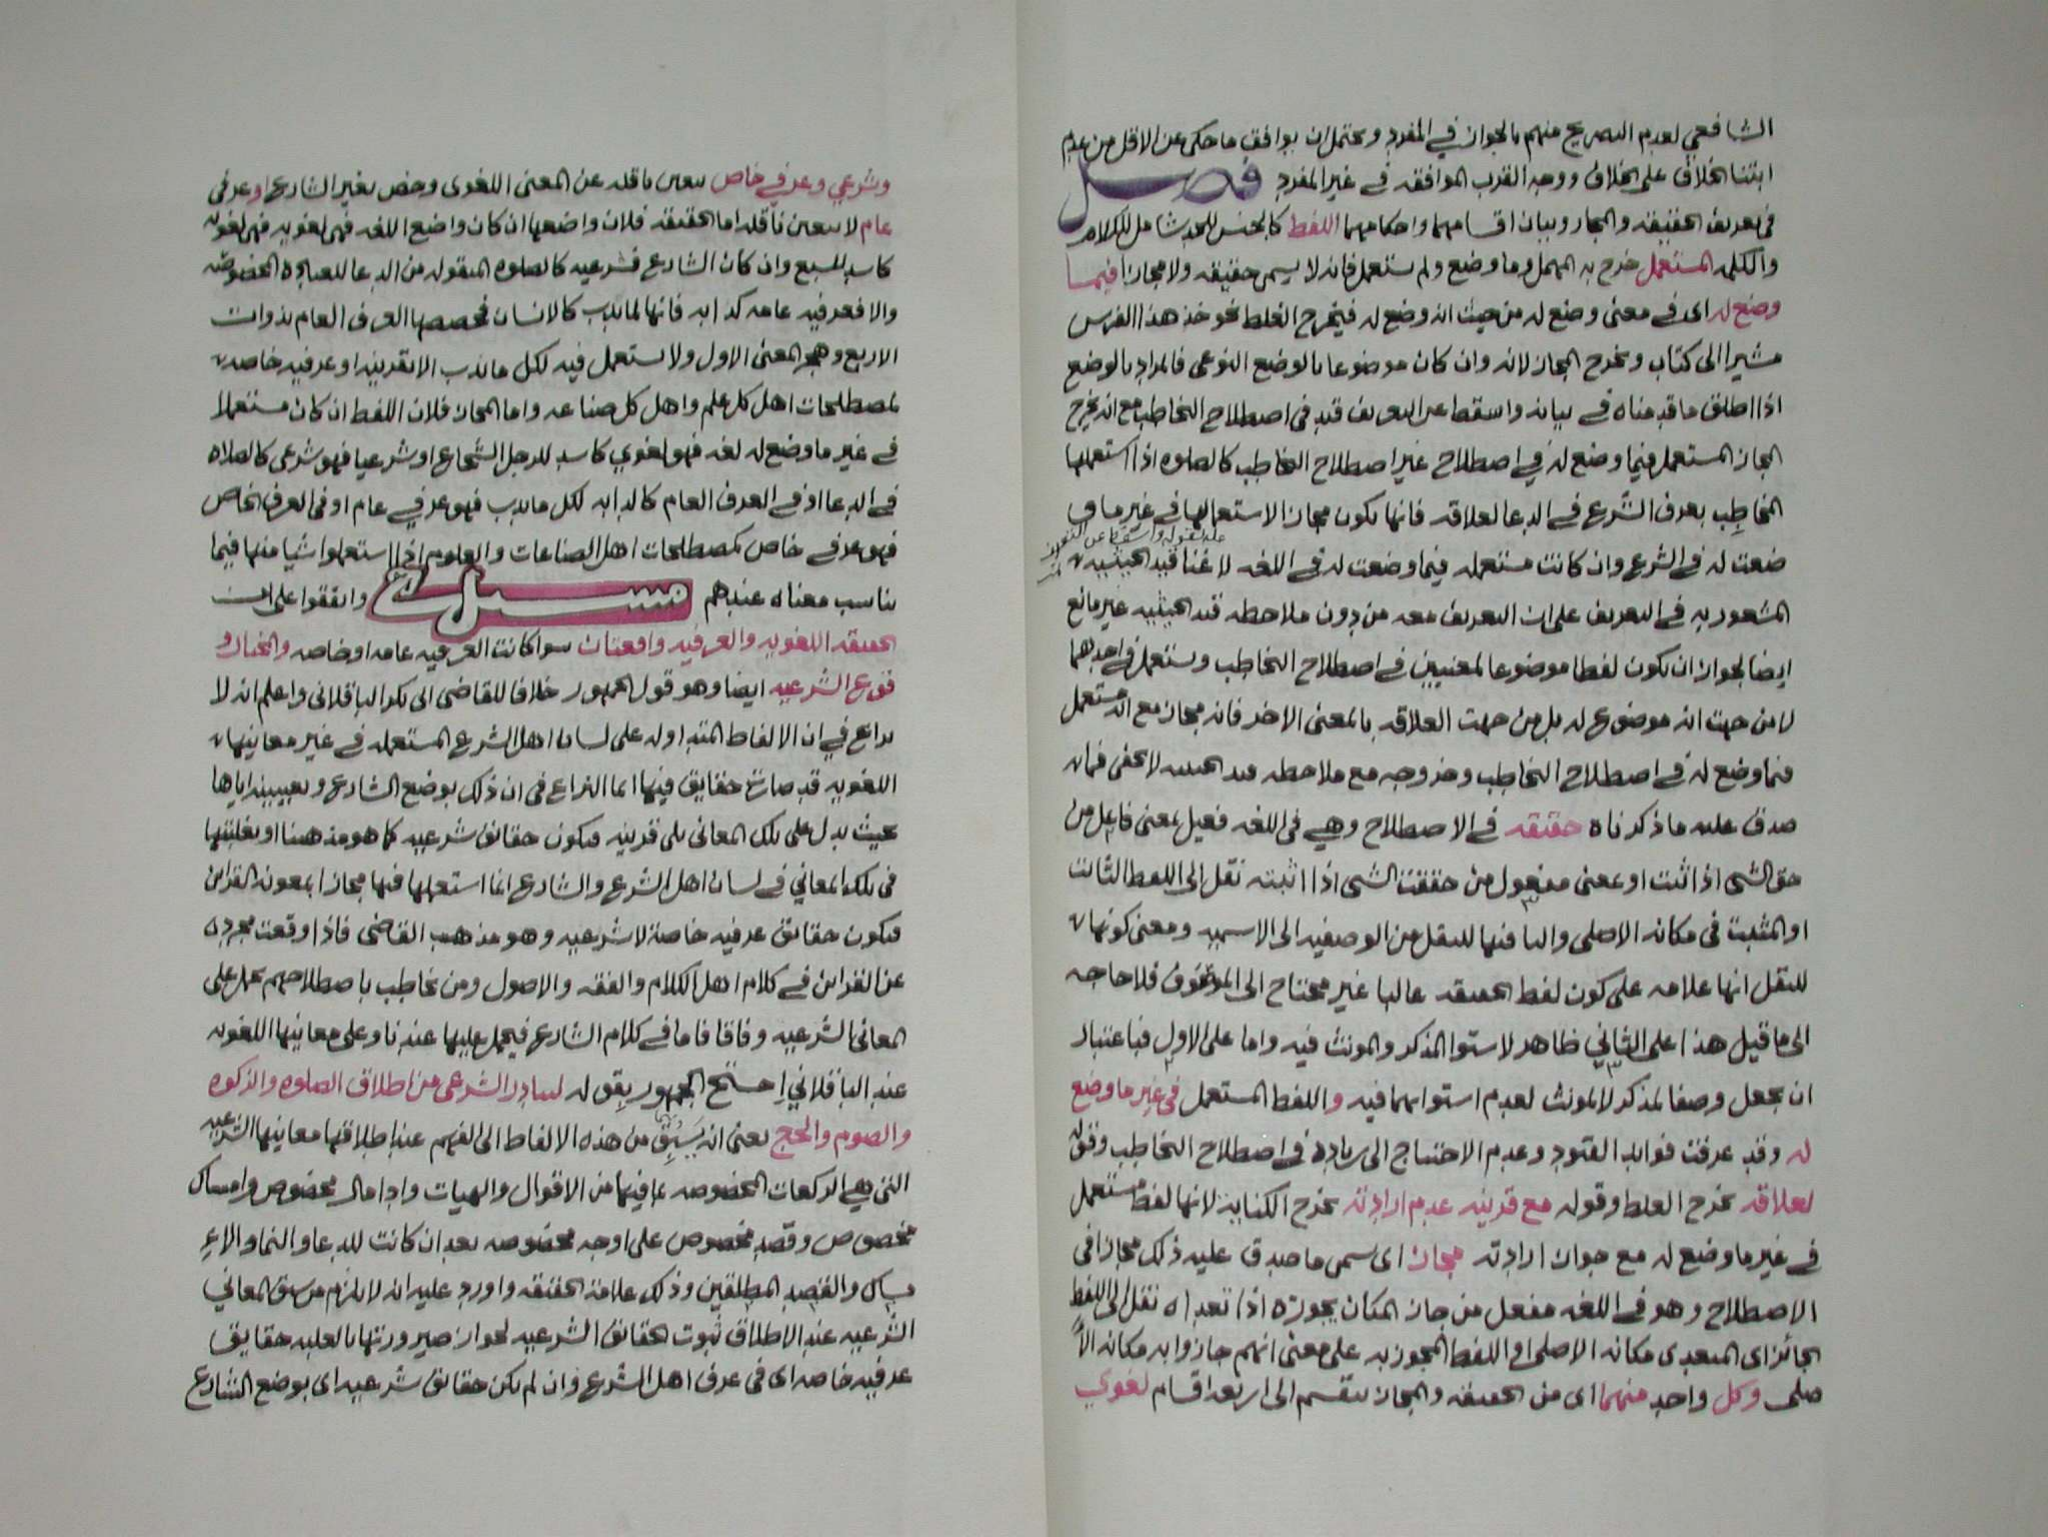 الشافعي لعدم التصريح منهم بالجواز في المفرد ويحتمل ان يوافق ما حكي عن الاقل من عدم
ابتنا الخلاف على الخلاف ووجه القرب الموافقه في غير المفرد فصل
في تعريف الحقيقه والمجاز وبيان اقسامهما واحكامهما اللفظ كالجنس للحد شامل للكلام
والكلمه المستعمل خرج به المهمل وما وضع ولم يستعمل فانه لا يسمى حقيقه ولا مجازا فيما
وضع له اى في معنى وضع له من حيث انه وضع له فيخرج الغلط نحو خذ هذا الفرس
مشيرا الى كتاب ويخرج المجاز لانه وان كان موضوعا بالوضع النوعي فالمراد بالوضع
اذا اطلق ما قدمناه في بيانه واسقط عن التعريف قيد في اصطلاح التخاطب مع انه يخرج
المجاز المستعمل فيما وضع له في اصطلاح غير اصطلاح التخاطب كالصلوه اذا استعملها
المخاطِب بعرف الشرع في الدعا لعلاقه فانها تكون مجازا لاستعمالها في غير ما و
عله لقوله واسقط عن التعريف
ضعت له في الشرع وان كانت مستعمله فيما وضعت له في اللغه لاغنا قيد الحيثيه
المشعور به في التعريف على ان التعريف معه من دون ملاحظه قيد الحيثيه غير مانع
ايضا لجواز ان يكون لفظا موضوعا لمعنيين في اصطلاح التخاطب ويستعمل في احدهما
لا من حيث انه موضوع له بل من جهت العلاقه بالمعنى الاخر فانه مجاز مع انه مستعمل
فيما وضع له في اصطلاح التخاطب وخروجه مع ملاحظه قيد الحيثيه لا يخفى فما
صدق عليه ما ذكرناه حقيقه في الاصطلاح وهي في اللغه فعيل بمعنى فاعل من
حق الشى اذا ثبت او بمعنى مفعول من حققت الشى اذا اثبته نقل الى اللفظ الثابت
او المثبت في مكانه الاصلي والتا فيها للنقل من الوصفيه الى الاسميه ومعنى كونها
للنقل انها علامه على كون لفظ الحقيقه غالبا غير محتاج الى الموصوف فلا حاجه
الى ما قيل هذا على الثاني ظاهر لاستوا المذكر والمونث فيه واما على الاول فباعتبار
ان يجعل وصفا لمذكر لا لمونث لعدم استوائهما فيه واللفظ المستعمل في غير ما وضع
له وقد عرفت فوائد القيود وعدم الاحتياج الى زياده في اصطلاح التخاطب وقوله
لعلاقه يخرج الغلط وقوله مع قرينه عدم ارادته يخرج الكنايه لانها لفظ مستعمل
في غير ما وضع له مع جواز ارادته مجاز اى سمى ما صدق عليه ذلك مجازا في
الاصطلاح وهو في اللغه مفعل من جاز المكان يجوزه اذا تعداه نقل الى اللفظ
الجائز اى المتعدى مكانه الاصلي او اللفظ المجوز به على معنى انهم جازوا به مكانه الا
صلي وكل واحد منهما اى من الحقيقه والمجاز ينقسم الى اربعه اقسام لغوي
وشرعي وعرفي خاص يتعين ناقله عن المعنى اللغوى وخص بغير الشارع او عرفي
عام لا يتعين ناقله اما الحقيقه فلان واضعها ان كان واضع اللغه فهي لغويه فهي لغويه
كاسد للسبع وان كان الشارع فشرعيه كالصلوه المنقوله من الدعا للعباده المخصوصه
والا فعرفيه عامه كدابه فانها لما يدب كالانسان فخصصها العرف العام بذوات
الاربع وهجر المعنى الاول ولا يستعمل فيه لكل ما يدب الا بقرينه او عرفيه خاصه
كمصطلحات اهل كل علم واهل كل صناعه واما المجاز فلان اللفظ ان كان مستعملا
في غير ما وضع له لغه فهو لغوي كاسد للرجل الشجاع او شرعيا فهو شرعي كالصلاه
في الدعا او في العرف العام كالدابه لكل ما يدب فهو عرفي عام او في العرف الخاص
فهو عرفي خاص كمصطلحات اهل الصناعات والعلوم اذا استعملوا شيا منها فيما
يناسب معناه عندهم مسئله واتفقوا على ان
الحقيقه اللغويه والعرفيه واقعتان سوا كانت العرفيه عامه او خاصه والمختار و
قوع الشرعيه ايضا وهو قول الجمهور خلافا للقاضي ابى بكر الباقلاني واعلم انه لا
نزاع في ان الالفاظ المتداوله على لسان اهل الشرع المستعمله في غير معانيها
اللغويه قد صارت حقايق فيها انما النزاع في ان ذلك بوضع الشارع وتعيينه اياها
بحيث يدل على تلك المعاني بلى قرينه فتكون حقائق شرعيه كما هو مذهبنا او بغلبتها
في تلك المعاني في لسان اهل الشرع والشارع انما استعملها فيها مجازا بمعونه القراين
فتكون حقائق عرفيه خاصة لا شرعيه وهو مذهب القاضي فاذا وقعت مجرده
عن القراين في كلام اهل الكلام والفقه والاصول ومن تخاطب باصطلاحهم يحمل على
المعاني الشرعيه وفاقا فاما في كلام الشارع فيحمل عليها عندنا وعلى معانيها اللغويه
عند الباقلاني احتج الجمهور بقوله لتبادر الشرعي من اطلاق الصلوه والزكوه
والصوم والحج يعنى انه يسبق من هذه الالفاظ الى الفهم عند اطلاقها معانيها الشرعيه
التي هي الركعات المخصوصه بما فيها من الاقوال والهيات وادا مال مخصوص وامساك
مخصوص وقصد مخصوص على اوجه مخصوصه بعد ان كانت للدعا والنما والا
مساك والقصد المطلقين وذلك علامة الحقيقه واورد عليه انه لا يلزم من سبق المعاني
الشرعيه عند الاطلاق ثبوت الحقائق الشرعيه لجواز صيرورتها بالغلبه حقايق
عرفيه خاصه اى في عرف اهل الشرع وان لم تكن حقائق شرعيه اى بوضع الشارع